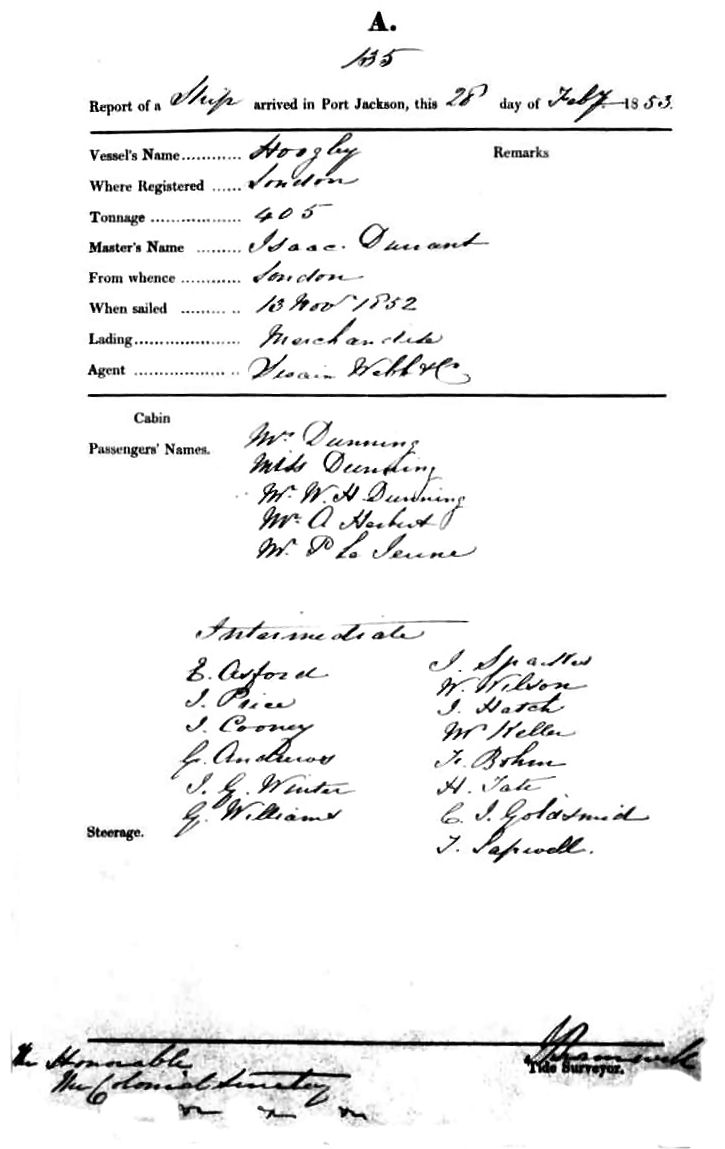 A.
135
Report of a Ship arrived in Port Jackson, this 28 day of Feby 1853.
Vessel's Name ............ Hoogley
Remarks
Where Registered ...... London
Tonnage .................. 405
Master's Name ......... Isaac Durrant
From whence ............ London
When sailed ......... .. 13 Novr 1852
Lading ..................... Merchandise
Agent .................. .. Webb & Co
Cabin
Passengers' Names.
Mrs Dunning
Miss Dunning
Mr. W. H. Dunning
Mr. A Herbert
Mr. P Le Jeune
Intermediate
E. Axford
J. Price
J. Cooney
G. Andrews
J. G. Winter
G. Williams
J. Sparkes
W. Wilson
J. Hatch
Mr Keller
F. Bohm
H. Tate
C. J. Goldsmid
T. Sapwell.
Steerage.
Tide Surveyor.
The Honorable
The Colonial Secretary